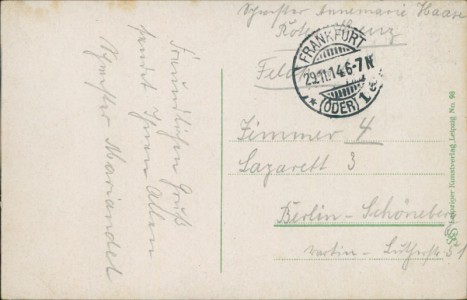 Freundlichen Gruß
sendet Ihnen Allen
Schwester Mariandel
Schwester Annemarie Haase
FRANKFURT
29.11.14.6-7 N
* (ODER) 1
Zimmer 4
Lazarett 3
Berlin-Schöneberg
Martin-Lutherstr 51
Leipziger Kunstverlag, Leipzig No. 98